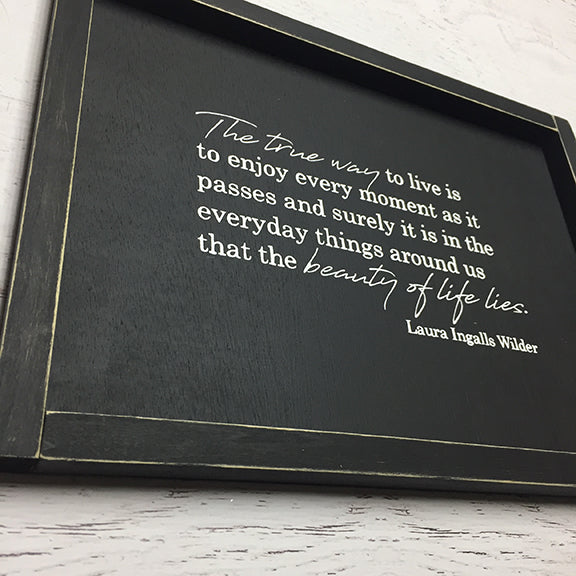 The true way to live is
to enjoy every moment as it
passes and surely it is in the
everyday things around us
that the beauty of life lies.
Laura Ingalls Wilder